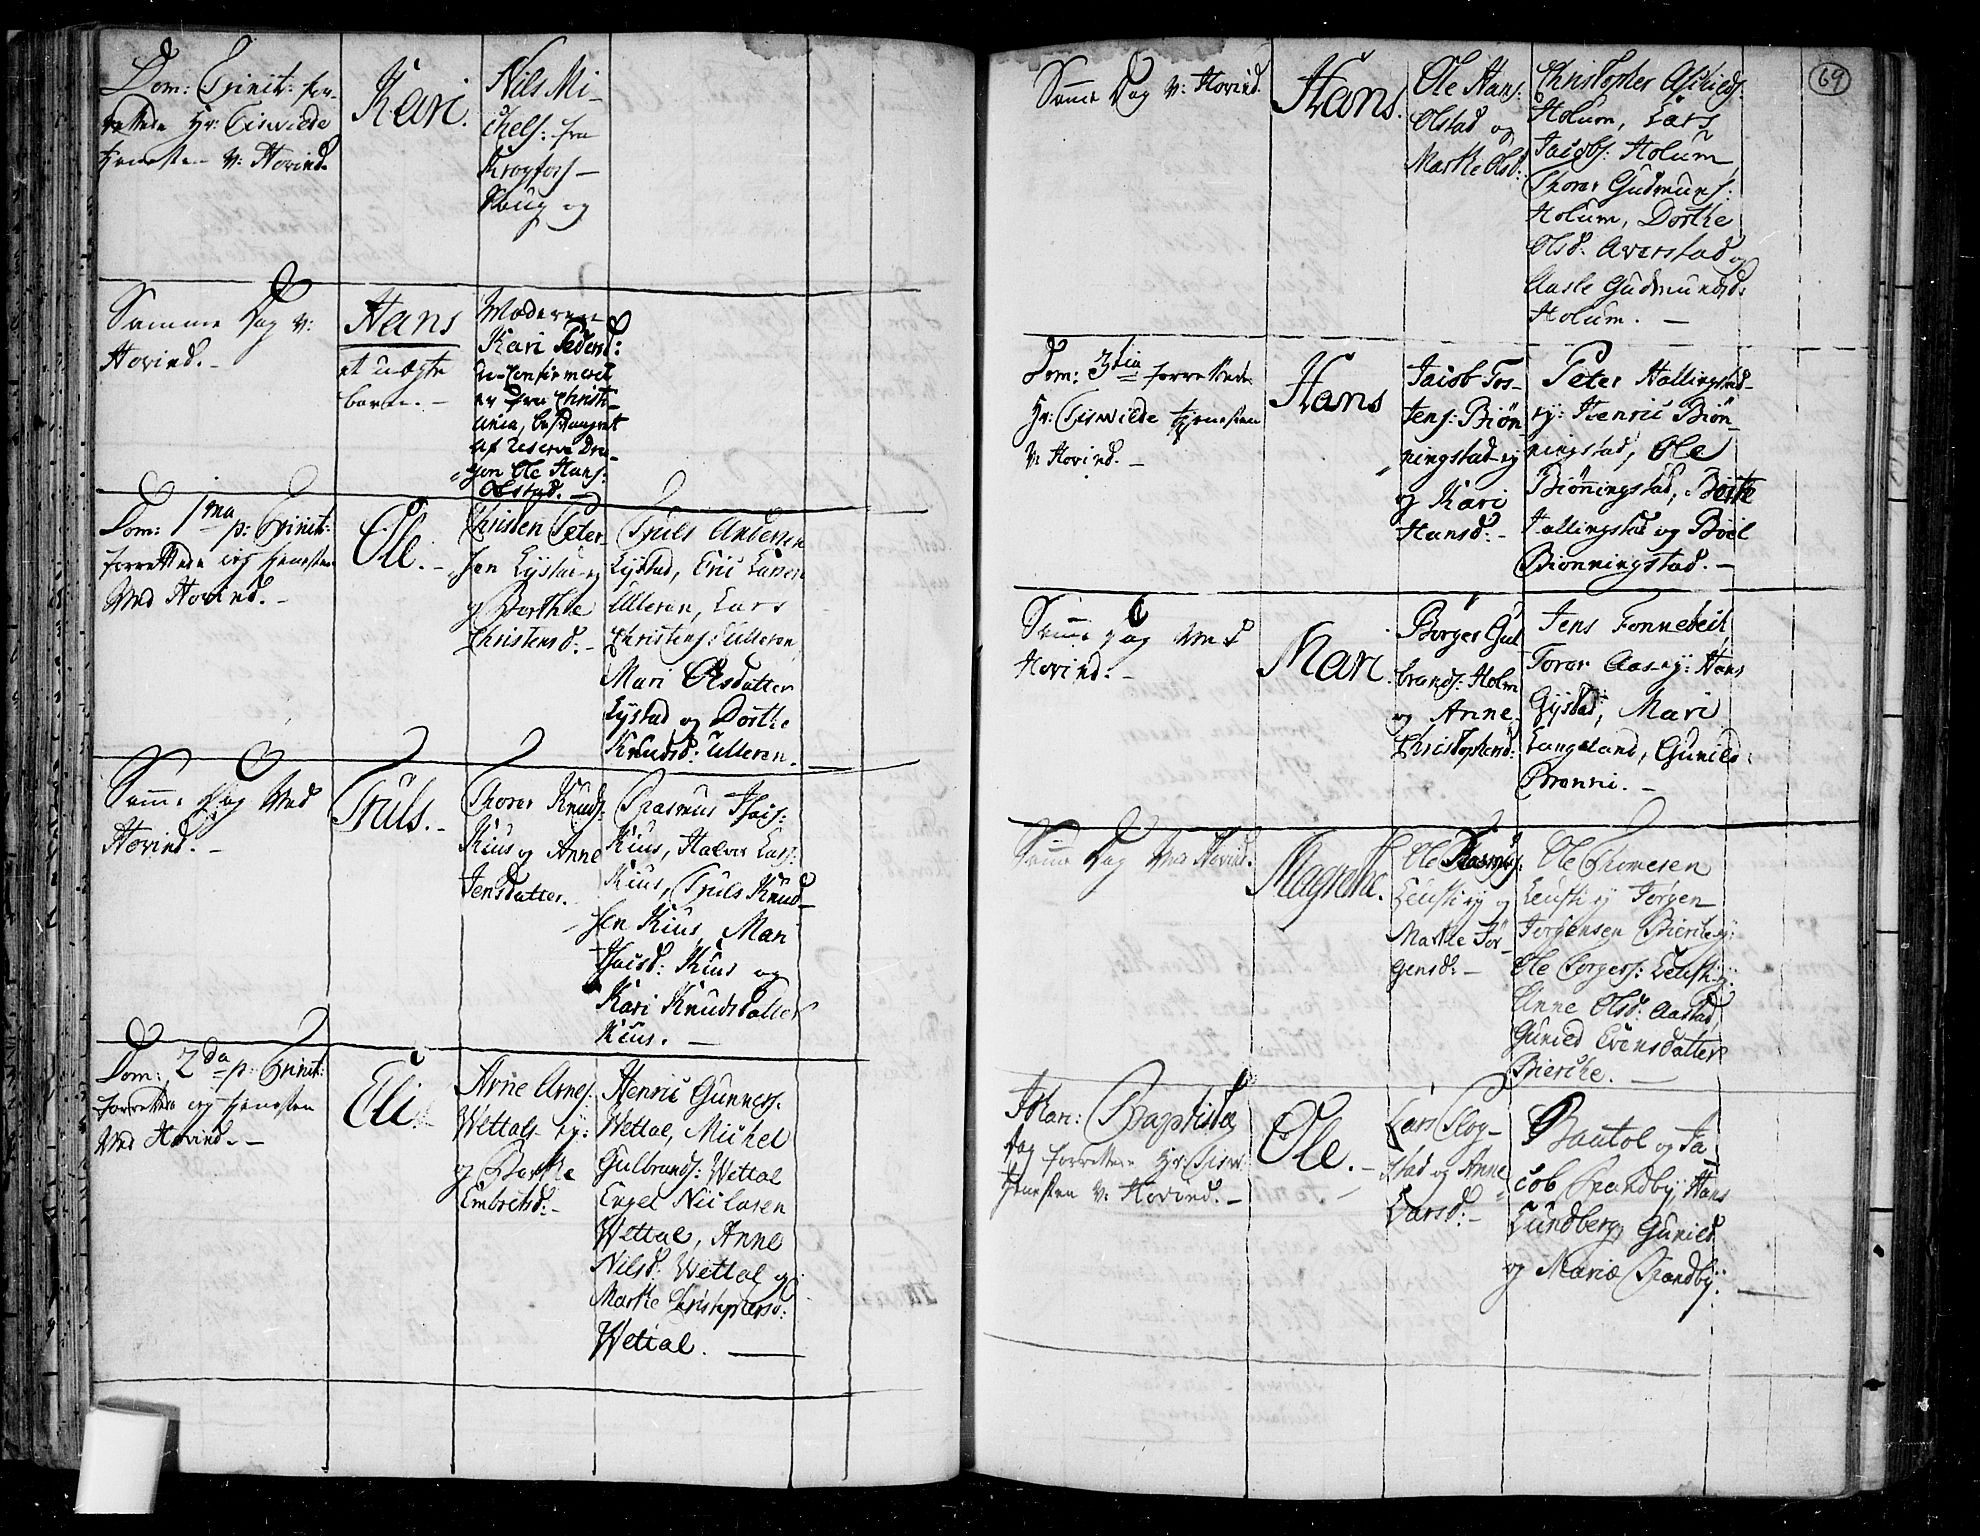 Dom: Trinit: for-
rettede Hr: Tisvilde
tienesten V: Hovind.
Kari.
Nils Mi-
chels: fra
Krogfors-
Houg og
Samme Dag v:
Hovind. -
Hans
et uægte
barn. -
Moderen
Kari Peders:
u-confirmeret
er fra Christi-
ania, besvangret
af reserve Dra-
gon Ole Hans:
Olstad. -
Dom: 1ma p: Trinit:
forrettede ieg tienesten
Ved Hovind. -
Ole. -
Christen Peter-
sen Lystad-ey
og Dorthe
Christensd. -
Truls Andersen
Lystad, Eric Larsen
Ulleren, Lars
Christens: Ulleren,
Mari Olsdatter
Lystad og Dorthe
Knudsd: Ulleren.
Samme Dag Ved
Hovind. -
Truls. -
Thorer Knuds:
Kius og Anne
Jensdatter.
Rasmus Isais:
Kius, Halvor Lars:
Kius, Truls Knud-
sen Kius, Mari
Isaisd: Kius og
Kari Knudsdatter
Kius. -
Dom: 2da p: Trinit:
forrettede ieg tienesten
Ved Hovind. -
Eli.
Arne Arnes:
Wettals ey:
og Dorthe
Embretsd: -
Henric Gunners:
Wettal, Michel
Gulbrands: Wettal
Engel Niclasen
Wettal, Anne
Nilsd: Wettal og
Marthe Christophersd:
Wettal. -
69
Samme Dag V: Hovind.
Hans.
Ole Hans:
Olstad og
Marthe Olsd:
Christopher
Holum, Lars
Jacobs: Holum,
Thorer Gudmuns:
Holum, Dorthe
Olsd: Averstad og
Aasle Gudmundsd:
Holum. -
Dom: 3tia forrettede
Hr: Tisvilde tienesten
V: Hovind. -
Hans
Jacob Tos-
tens: Biøn-
ningstad-ey
og Kari
Hansd: -
Peter Hallingstad-
ey: Henric Biøn-
ningstad, Ole
Biønningstad, Berte
Hallingstad og Boel
Biønningstad. -
Samme Dag Ved
Hovind. -
Mari.
Børger Gul
brands: Holm
og Anne
Christophersd:
Jens Fonnebeck,
Torer Aas-ey: Hans
Gystad, Mari
Langeland, Gunild
Brønni. -
Samme Dag Ved Hovind.
Magrethe.
Ole Rasmus:
og
Marthe Jør
gensd: -
Ole Thomesen
Jørgen
Jørgensen Bierche
Ole
Anne Olsd: Aastad,
Gunild Evensdatter
Bierche. -
Johan: Baptistæ
Dag forrettede Hr: Tisv:
tienesten V: Hovind. -
Ole. -
Lars Slog-
stad og Anne
Larsd: -
Bautol og Ja-
cob Brandby, Hans
Lundberg, Gunild
og Maria Brandby: -